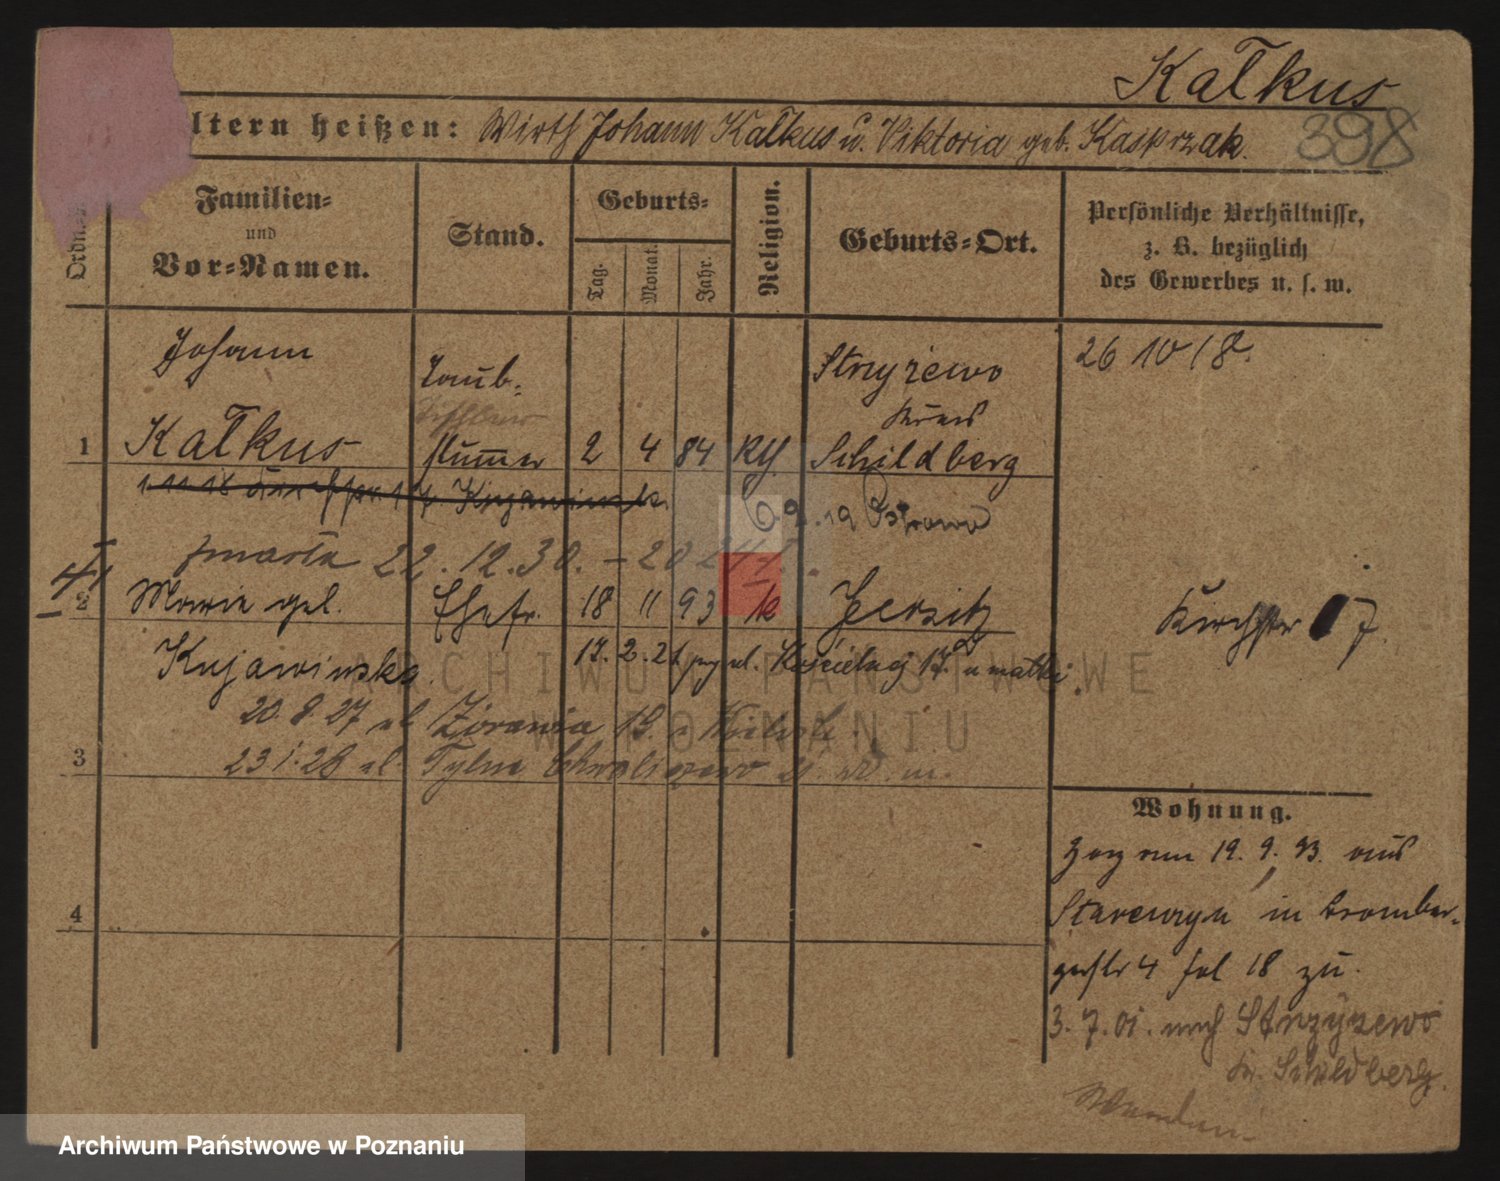 Kałkus
ltern heißen: Wirth Johann Kałkus u. Viktoria geb. Kasprzak.
398
Ordn.
Familien-
und
Vor-Namen.
Stand.
Geburts-
Tag.
Monat.
Jahr.
Religion.
Geburts-Ort.
Persönliche Verhältnisse,
z. B. bezüglich
des Gewerbes u. s. w.
Johann
Taub-
Stryżewo
26 10 18.
Kreis
1 Kałkus stummer 2 4 84 Kth. Schildberg
6.2.19 Ostrowo
zmarła 22.12.30. - 20
2 Marie geb. Ehefr. 18 11 93 k Jersitz
Kirchstr 17
Kujawinska
17.2.21 ul. Kościelnej 17 u matki.
20.8.27 ul Żórawia
3 23 1.28 ul. Tylne Chwaliszewo
Wohnung.
Zog am 19. 9. 93. aus
in Bromber-
gerstr 4 fol 18 zu.
3. 7. 01. nach Strzyżewo
Kr. Schildberg.
4
ARCHIWUM PAŃSTWOWE
W POZNANIU
Archiwum Państwowe w Poznaniu